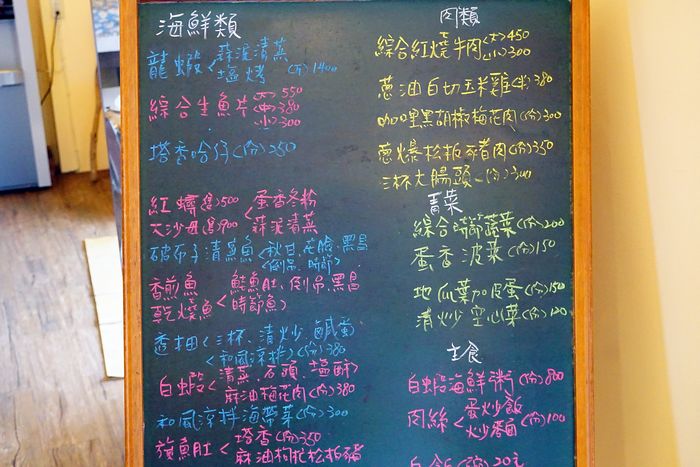 海鮮類
龍蝦<蒜泥清蒸
塩烤 (份)1400
綜合生魚片(大)550
(中)380
(小)300
塔香哈仔(份)250
紅蟳(隻)500
大沙母(隻)900
<蛋香冬粉
蒜泥清蒸
破布子清蒸魚
時節)
香煎魚
乾燒魚
鮭魚肚、倒吊、黑昌
時節魚)
透抽<三杯、清炒、鹹蛋
和風涼拌(份)380
白蝦<清蒸、石頭、塩酥
麻油梅花肉(份)380
和風涼拌海帶菜(份)300
旗魚肚<塔香(份)350
麻油枸杞松板豬
肉類
綜合紅燒牛肉(大)450
(小)300
蔥油白切玉米雞(半)380
咖哩黑胡椒梅花肉(份)300
蔥爆松板豬肉(份)350
三杯大腸頭-(份)300
菁菜
綜合時節蔬菜(份)200
蛋香波菜(份)150
地瓜葉加皮蛋(份)150
清炒空心菜(份)120
主食
白蝦海鮮粥(份)800
肉絲<蛋炒飯
炒麵(份)100
白飯(份)20元